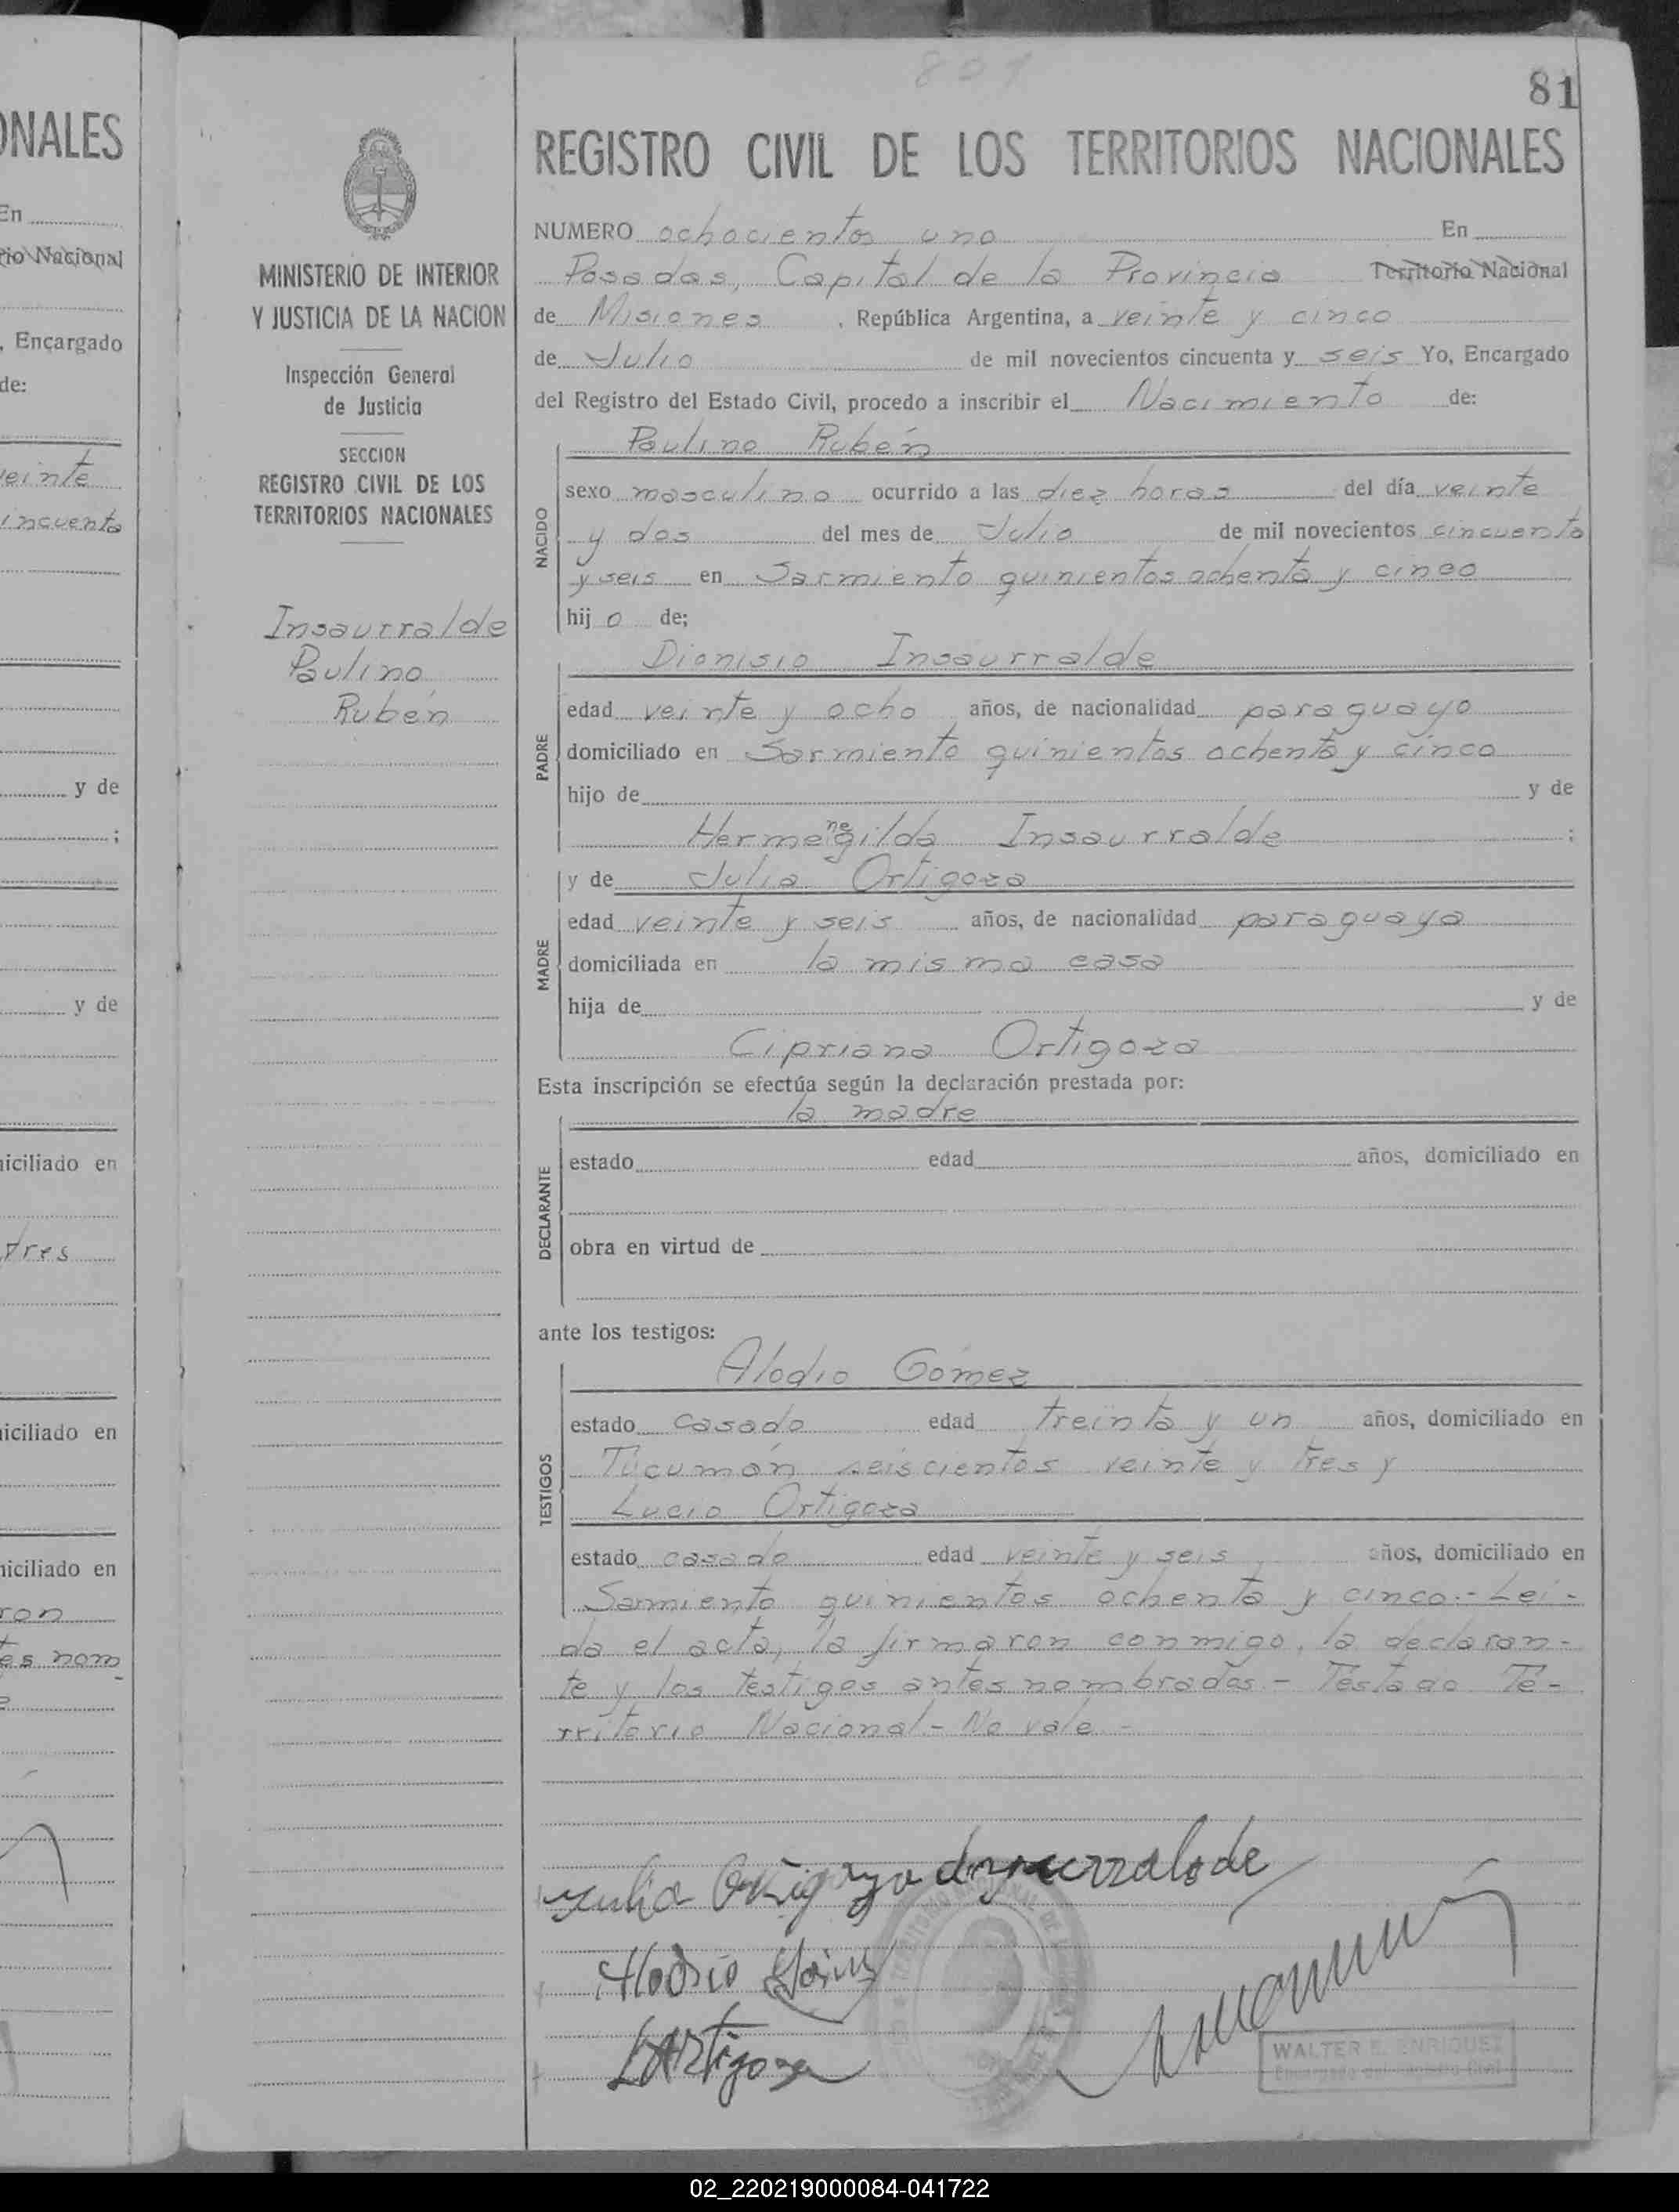 801
81
ONALES
En
rio Nacional
, Encargado
de:
veinte
incuenta
y de
;
y de
niciliado en
tres
niciliado en
niciliado en
ron
tes nom
MINISTERIO DE INTERIOR
Y JUSTICIA DE LA NACION
Inspección General
de Justicia
SECCION
REGISTRO CIVIL DE LOS
TERRITORIOS NACIONALES
Insaurralde
Paulino
Rubén
REGISTRO CIVIL DE LOS TERRITORIOS NACIONALES
NUMERO ochocientos uno En
Posadas, Capital de la Provincia Territorio Nacional
de Misiones, República Argentina, a veinte y cinco
de Julio de mil novecientos cincuenta y seis Yo, Encargado
del Registro del Estado Civil, procedo a inscribir el Nacimiento de:
Paulino Rubén
NACIDO
sexo masculino ocurrido a las diez horas del día veinte
y dos del mes de Julio de mil novecientos cincuenta
y seis en Sarmiento quinientos ochenta y cinco
hijo de;
Dionisio Insaurralde
PADRE
edad veinte y ocho años, de nacionalidad paraguayo
domiciliado en Sarmiento quinientos ochenta y cinco
hijo de y de
Hermenegilda Insaurralde ;
y de Julia Ortigoza
MADRE
edad veinte y seis años, de nacionalidad paraguaya
domiciliada en la misma casa
hija de y de
Cipriana Ortigoza
Esta inscripción se efectúa según la declaración prestada por:
la madre
DECLARANTE
estado edad años, domiciliado en
obra en virtud de
ante los testigos:
Alodio Gómez
TESTIGOS
estado casado edad treinta y un años, domiciliado en
Tucumán seiscientos veinte y tres y
Lucio Ortigoza
estado casado edad veinte y seis años, domiciliado en
Sarmiento quinientos ochenta y cinco.- Lei-
da el acta, la firmaron conmigo, la declaran-
te y los testigos antes nombrados.- Testado Te-
rritorio Nacional- No vale.-
Julia Ortigoza de Insaurralde
Alodio Gómez
L Ortigoza
WALTER E. ENRIQUEZ
Encargado del Registro Civil
02_220219000084-041722